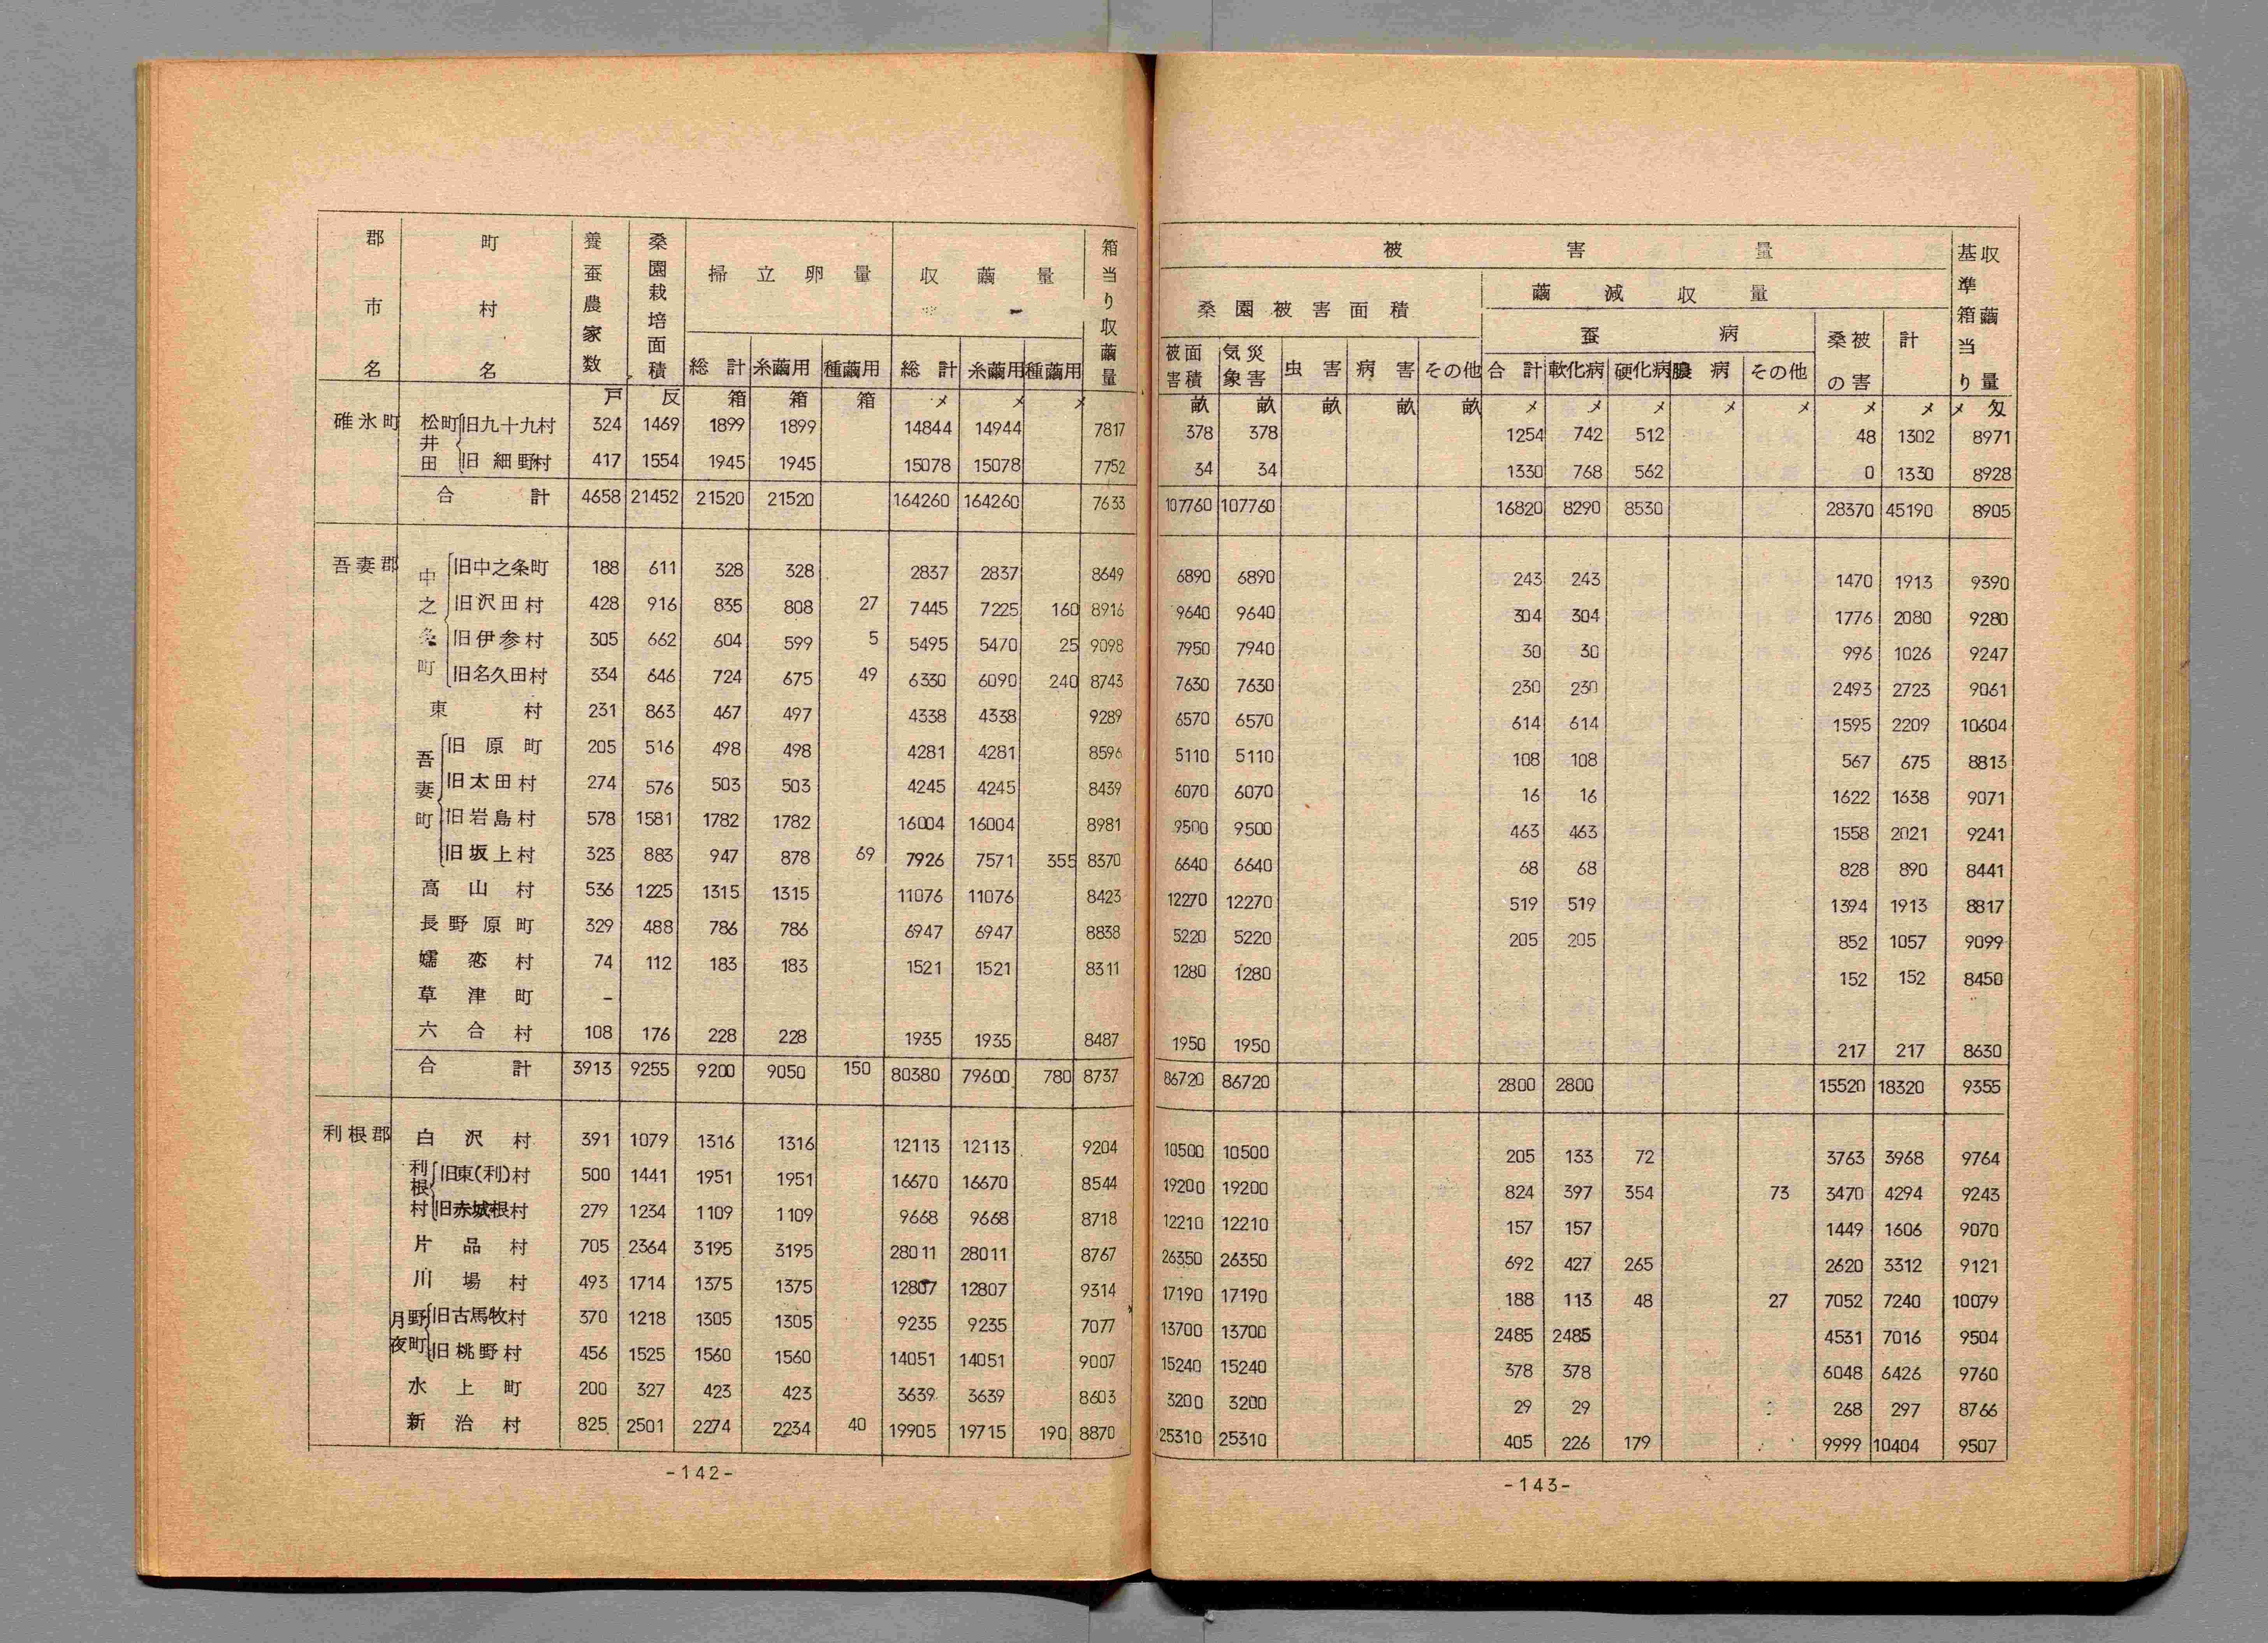 郡市名 町村名 養蚕農家数 桑園栽培面積 掃立卵量 収繭量 箱当り収繭量
総計 糸繭用 種繭用 総計 糸繭用 種繭用
戸 反 箱 箱 箱 メ メ メ
碓氷町 松井田町 旧九十九村 324 1469 1899 1899 14844 14944 7817
旧細野村 417 1554 1945 1945 15078 15078 7752
合計 4658 21452 21520 21520 164260 164260 7633
吾妻郡 中之条町 旧中之条町 188 611 328 328 2837 2837 8649
旧沢田村 428 916 835 808 27 7445 7225 160 8916
旧伊参村 305 662 604 599 5 5495 5470 25 9098
旧名久田村 334 646 724 675 49 6330 6090 240 8743
東村 231 863 467 497 4338 4338 9289
吾妻町 旧原町 205 516 498 498 4281 4281 8596
旧太田村 274 576 503 503 4245 4245 8439
旧岩島村 578 1581 1782 1782 16004 16004 8981
旧坂上村 323 883 947 878 69 7926 7571 355 8370
高山村 536 1225 1315 1315 11076 11076 8423
長野原町 329 488 786 786 6947 6947 8838
嬬恋村 74 112 183 183 1521 1521 8311
草津町 -
六合村 108 176 228 228 1935 1935 8487
合計 3913 9255 9200 9050 150 80380 79600 780 8737
利根郡 白沢村 391 1079 1316 1316 12113 12113 9204
利根村 旧東(利)村 500 1441 1951 1951 16670 16670 8544
旧赤城根村 279 1234 1109 1109 9668 9668 8718
片品村 705 2364 3195 3195 28011 28011 8767
川場村 493 1714 1375 1375 12807 12807 9314
月野夜町 旧古馬牧村 370 1218 1305 1305 9235 9235 7077
旧桃野村 456 1525 1560 1560 14051 14051 9007
水上町 200 327 423 423 3639 3639 8603
新治村 825 2501 2274 2234 40 19905 19715 190 8870
-142-
被害量 基準箱当り収繭量
桑園被害面積 繭減収量
蚕病 桑被の害 計
被害面積 気象災害 虫害 病害 その他 合計 軟化病 硬化病 膿病 その他
畝 畝 畝 畝 畝 メ メ メ メ メ メ メ メ 匁
378 378 1254 742 512 48 1302 8971
34 34 1330 768 562 0 1330 8928
107760 107760 16820 8290 8530 28370 45190 8905
6890 6890 243 243 1470 1913 9390
9640 9640 304 304 1776 2080 9280
7950 7940 30 30 996 1026 9247
7630 7630 230 230 2493 2723 9061
6570 6570 614 614 1595 2209 10604
5110 5110 108 108 567 675 8813
6070 6070 16 16 1622 1638 9071
9500 9500 463 463 1558 2021 9241
6640 6640 68 68 828 890 8441
12270 12270 519 519 1394 1913 8817
5220 5220 205 205 852 1057 9099
1280 1280 152 152 8450
1950 1950 217 217 8630
86720 86720 2800 2800 15520 18320 9355
10500 10500 205 133 72 3763 3968 9764
19200 19200 824 397 354 73 3470 4294 9243
12210 12210 157 157 1449 1606 9070
26350 26350 692 427 265 2620 3312 9121
17190 17190 188 113 48 27 7052 7240 10079
13700 13700 2485 2485 4531 7016 9504
15240 15240 378 378 6048 6426 9760
3200 3200 29 29 268 297 8766
25310 25310 405 226 179 9999 10404 9507
-143-